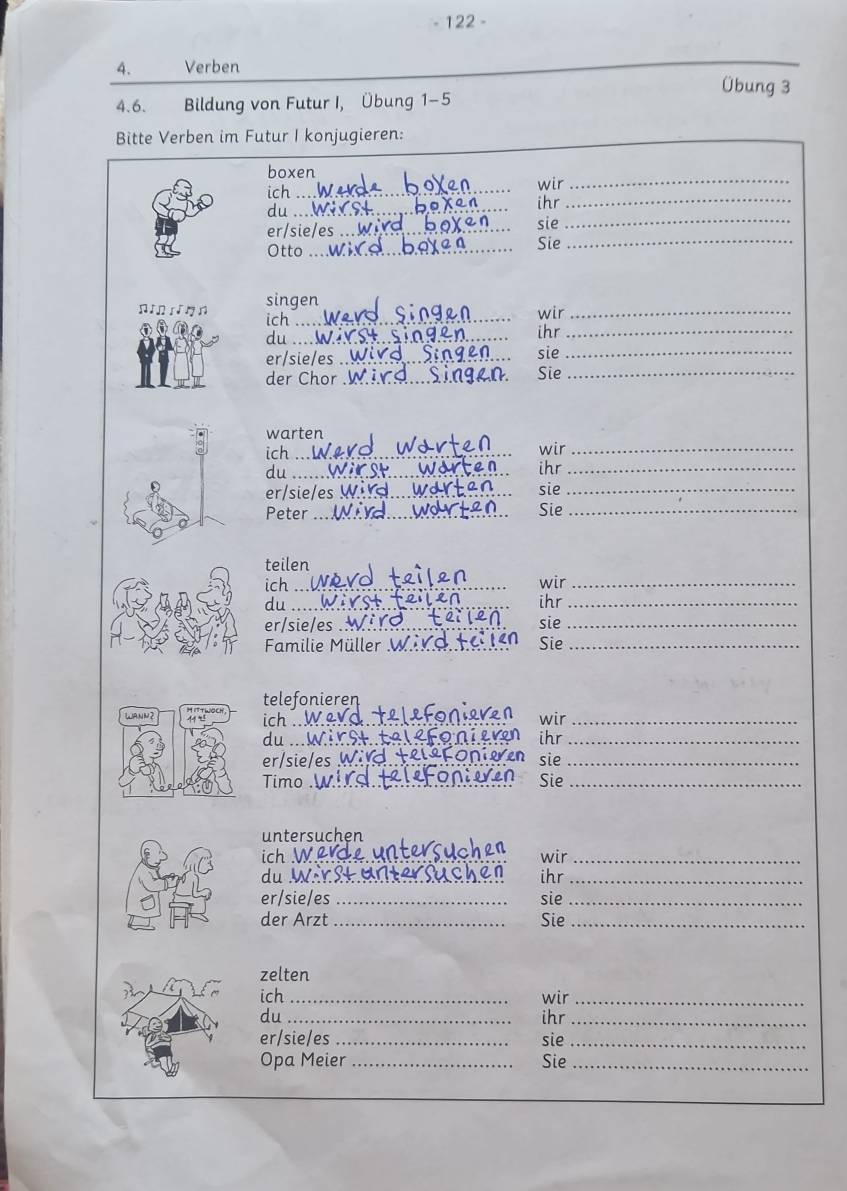 - 122 -
4. Verben
Übung 3
4.6. Bildung von Futur I, Übung 1-5
Bitte Verben im Futur I konjugieren:
boxen
ich werde boxen wir
du wirst boxen ihr
er/sie/es wird boxen sie
Otto wird boxen Sie
singen
ich werd singen wir
du wirst singen ihr
er/sie/es wird singen sie
der Chor wird singen. Sie
warten
ich werd warten wir
du wirst warten ihr
er/sie/es wird warten sie
Peter wird warten Sie
teilen
ich werd teilen wir
du wirst teilen ihr
er/sie/es wird teilen sie
Familie Müller wird teilen Sie
WANN?
MITTWOCH,
telefonieren
ich werd telefonieren wir
du wirst telefonieren ihr
er/sie/es wird telefonieren sie
Timo wird telefonieren Sie
untersuchen
ich werde untersuchen wir
du wirst untersuchen ihr
er/sie/es sie
der Arzt Sie
zelten
ich wir
du ihr
er/sie/es sie
Opa Meier Sie